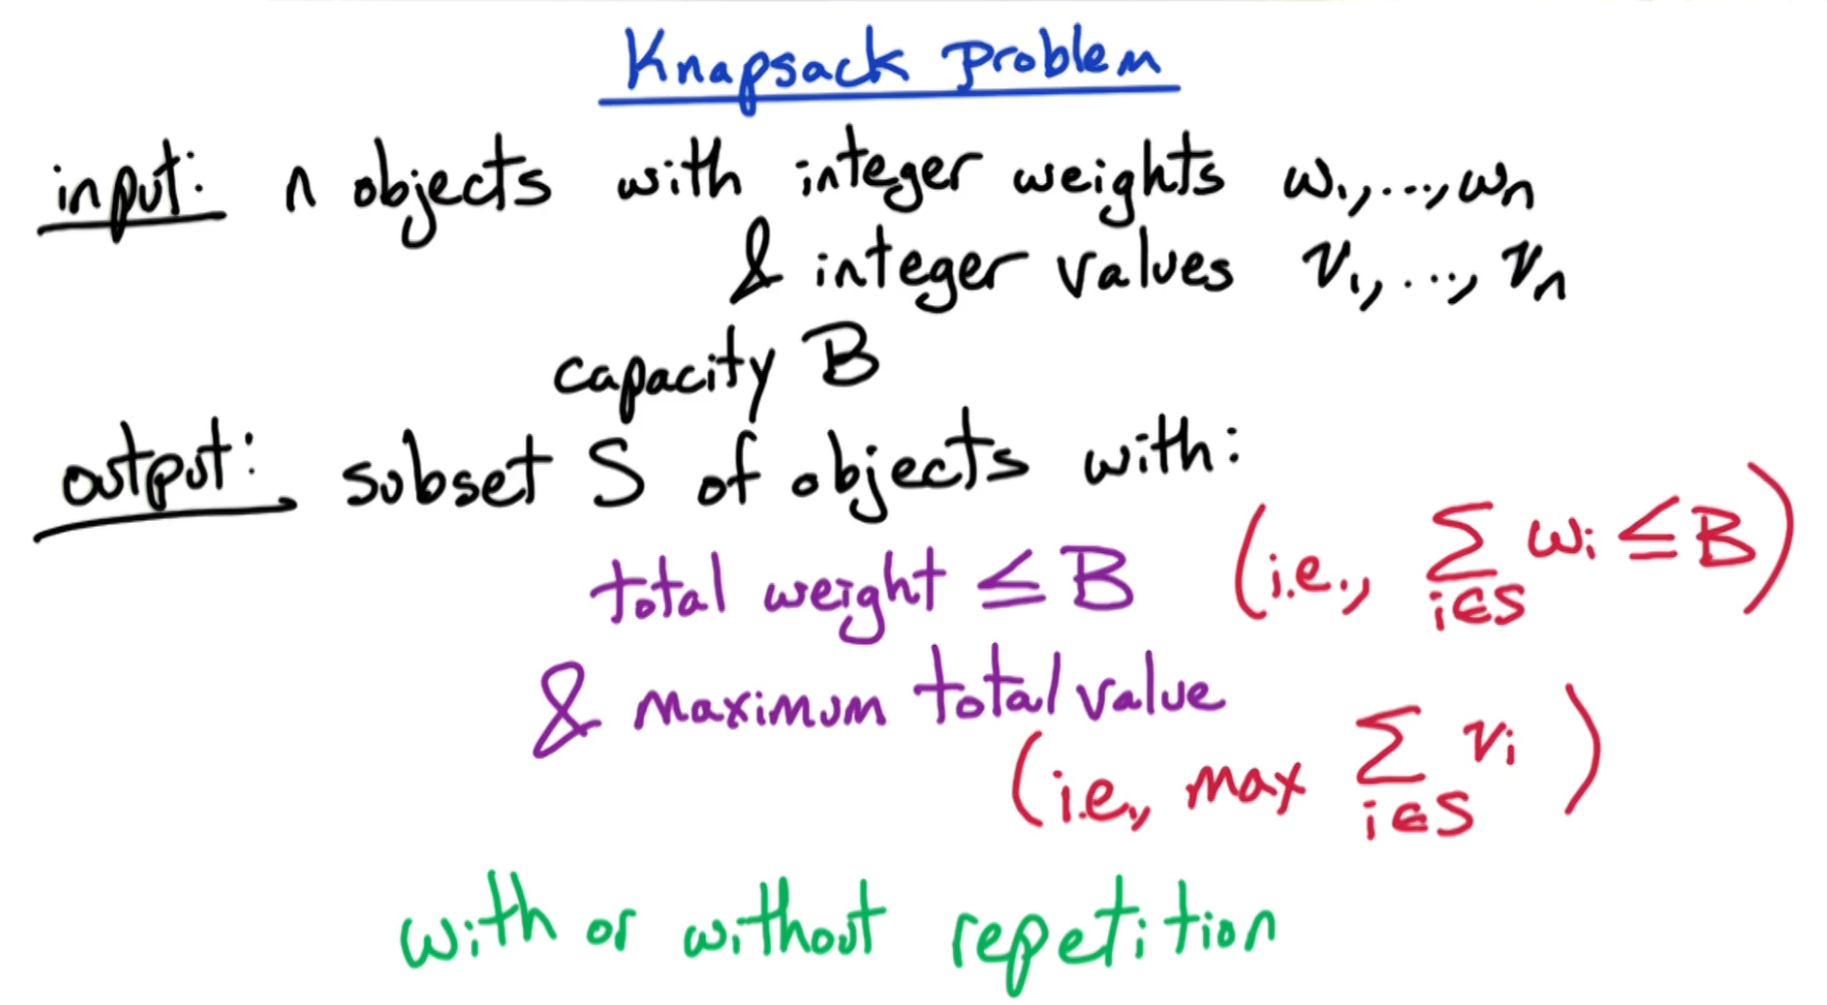 Knapsack Problem
input: n objects with integer weights w₁,...,wₙ
& integer values v₁,...,vₙ
capacity B
output: subset S of objects with:
total weight ≤ B (i.e., ∑_{i∈S} wᵢ ≤ B)
& maximum total value
(i.e., max ∑_{i∈S} vᵢ)
with or without repetition